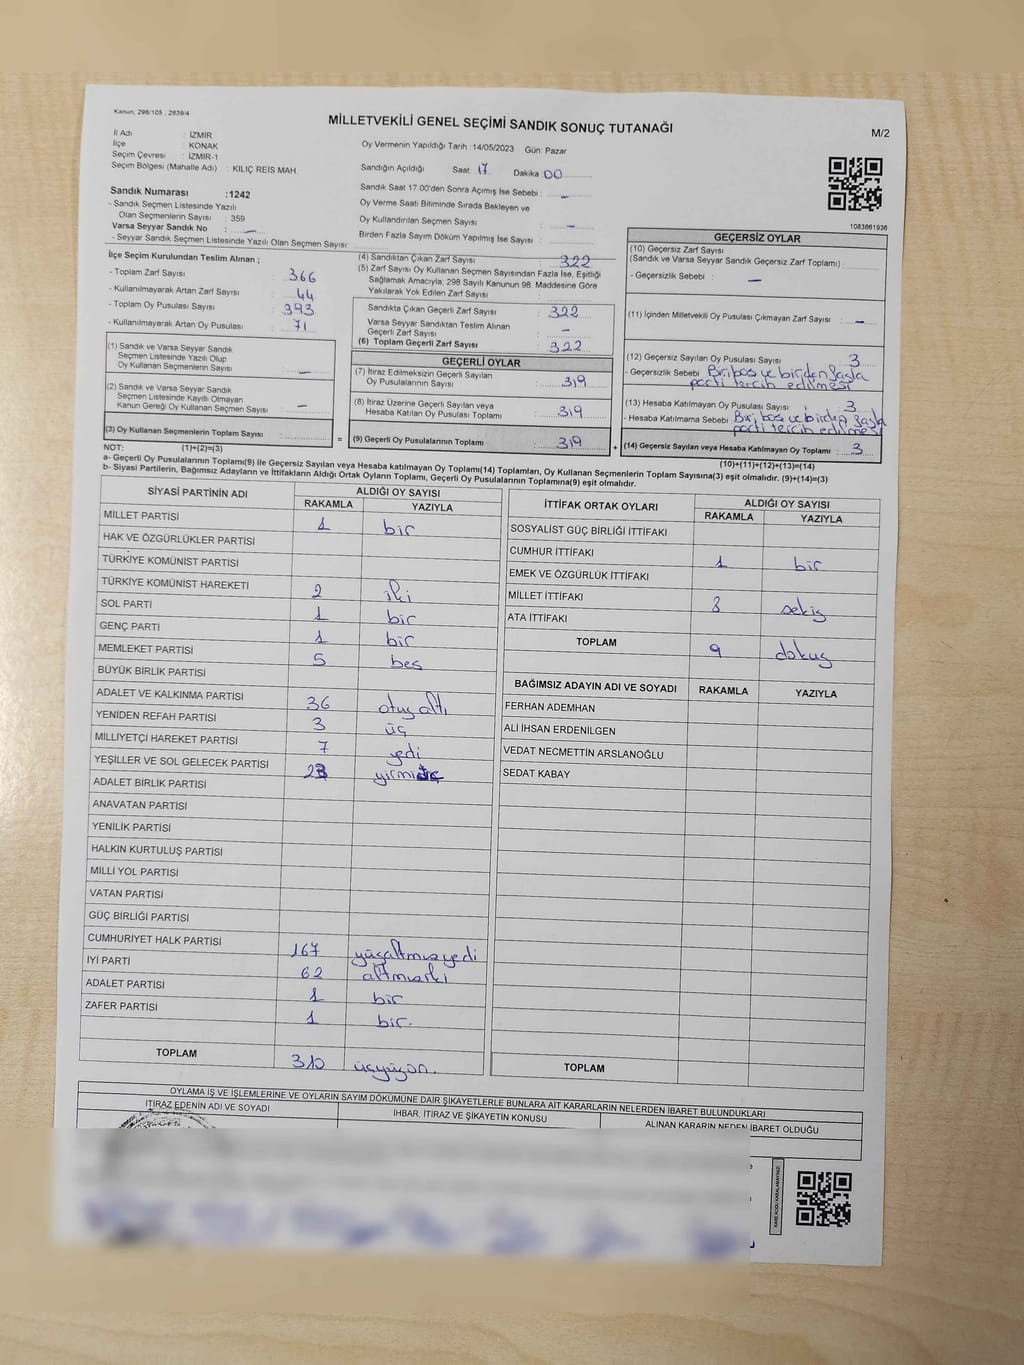 Kanun, 298/105 , 2839/4
MİLLETVEKİLİ GENEL SEÇİMİ SANDIK SONUÇ TUTANAĞI
M/2
İl Adı : İZMİR
İlçe : KONAK
Seçim Çevresi : İZMİR-1
Seçim Bölgesi (Mahalle Adı) : KILIÇ REİS MAH.
Oy Vermenin Yapıldığı Tarih : 14/05/2023 Gün: Pazar
Sandığın Açıldığı Saat: 17 Dakika : 00
Sandık Saat 17:00'den Sonra Açmış İse Sebebi : —
Oy Verme Saati Bitiminde Sırada Bekleyen ve
Oy Kullandırılan Seçmen Sayısı : —
Birden Fazla Sayım Döküm Yapılmış İse Sayısı :
Sandık Numarası : 1242
- Sandık Seçmen Listesinde Yazılı
Olan Seçmenlerin Sayısı : 359
Varsa Seyyar Sandık No : —
- Seyyar Sandık Seçmen Listesinde Yazılı Olan Seçmen Sayısı:
1083861936
İlçe Seçim Kurulundan Teslim Alınan ;
- Toplam Zarf Sayısı : 366
- Kullanılmayarak Artan Zarf Sayısı : 44
- Toplam Oy Pusulası Sayısı : 393
- Kullanılmayarak Artan Oy Pusulası : 71
(1) Sandık ve Varsa Seyyar Sandık
Seçmen Listesinde Yazılı Olup
Oy Kullanan Seçmenlerin Sayısı : —
(2) Sandık ve Varsa Seyyar Sandık
Seçmen Listesinde Kayıtlı Olmayan
Kanun Gereği Oy Kullanan Seçmen Sayısı : —
(3) Oy Kullanan Seçmenlerin Toplam Sayısı :
(1)+(2)=(3)
(4) Sandıktan Çıkan Zarf Sayısı : 322
(5) Zarf Sayısı Oy Kullanan Seçmen Sayısından Fazla İse, Eşitliği
Sağlamak Amacıyla, 298 Sayılı Kanunun 98. Maddesine Göre
Yakılarak Yok Edilen Zarf Sayısı :
Sandıkta Çıkan Geçerli Zarf Sayısı : 322
Varsa Seyyar Sandıktan Teslim Alınan
Geçerli Zarf Sayısı : —
(6) Toplam Geçerli Zarf Sayısı : 322
GEÇERLİ OYLAR
(7) İtiraz Edilmeksizin Geçerli Sayılan
Oy Pusulalarının Sayısı : 319
(8) İtiraz Üzerine Geçerli Sayılan veya
Hesaba Katılan Oy Pusulası Toplamı : 319
= (9) Geçerli Oy Pusulalarının Toplamı : 319 +
GEÇERSİZ OYLAR
(10) Geçersiz Zarf Sayısı
(Sandık ve Varsa Seyyar Sandık Geçersiz Zarf Toplamı) :
- Geçersizlik Sebebi : —
(11) İçinden Milletvekili Oy Pusulası Çıkmayan Zarf Sayısı : —
(12) Geçersiz Sayılan Oy Pusulası Sayısı : 3
- Geçersizlik Sebebi : Biri boş ve birden fazla
parti tercih edilmesi
(13) Hesaba Katılmayan Oy Pusulası Sayısı : 3
- Hesaba Katılmama Sebebi : Biri boş ve birden fazla
parti tercih edilmesi
(14) Geçersiz Sayılan veya Hesaba Katılmayan Oy Toplamı : 3
(10)+(11)+(12)+(13)=(14)
NOT:
a- Geçerli Oy Pusulalarının Toplamı(9) ile Geçersiz Sayılan veya Hesaba katılmayan Oy Toplamı(14) Toplamları, Oy Kullanan Seçmenlerin Toplam Sayısına(3) eşit olmalıdır. (9)+(14)=(3)
b- Siyasi Partilerin, Bağımsız Adayların ve İttifakların Aldığı Ortak Oyların Toplamı, Geçerli Oy Pusulalarının Toplamına(9) eşit olmalıdır.
SİYASİ PARTİNİN ADI ALDIĞI OY SAYISI
RAKAMLA YAZIYLA
MİLLET PARTİSİ 1 bir
HAK VE ÖZGÜRLÜKLER PARTİSİ
TÜRKİYE KOMÜNİST PARTİSİ
TÜRKİYE KOMÜNİST HAREKETİ 2 iki
SOL PARTİ 1 bir
GENÇ PARTİ 1 bir
MEMLEKET PARTİSİ 5 beş
BÜYÜK BİRLİK PARTİSİ
ADALET VE KALKINMA PARTİSİ 36 otuzaltı
YENİDEN REFAH PARTİSİ 3 üç
MİLLİYETÇİ HAREKET PARTİSİ 7 yedi
YEŞİLLER VE SOL GELECEK PARTİSİ 23 yirmiüç
ADALET BİRLİK PARTİSİ
ANAVATAN PARTİSİ
YENİLİK PARTİSİ
HALKIN KURTULUŞ PARTİSİ
MİLLİ YOL PARTİSİ
VATAN PARTİSİ
GÜÇ BİRLİĞİ PARTİSİ
CUMHURİYET HALK PARTİSİ 167 yüzaltmışyedi
İYİ PARTİ 62 altmışiki
ADALET PARTİSİ 1 bir
ZAFER PARTİSİ 1 bir.
TOPLAM 310 üçyüzon.
İTTİFAK ORTAK OYLARI ALDIĞI OY SAYISI
RAKAMLA YAZIYLA
SOSYALİST GÜÇ BİRLİĞİ İTTİFAKI
CUMHUR İTTİFAKI 1 bir
EMEK VE ÖZGÜRLÜK İTTİFAKI
MİLLET İTTİFAKI 8 sekiz
ATA İTTİFAKI
TOPLAM 9 dokuz
BAĞIMSIZ ADAYIN ADI VE SOYADI RAKAMLA YAZIYLA
FERHAN ADEMHAN
ALİ İHSAN ERDENİLGEN
VEDAT NECMETTİN ARSLANOĞLU
SEDAT KABAY
TOPLAM
OYLAMA İŞ VE İŞLEMLERİNE VE OYLARIN SAYIM DÖKÜMÜNE DAİR ŞİKAYETLERLE BUNLARA AİT KARARLARIN NELERDEN İBARET BULUNDUKLARI
İTİRAZ EDENİN ADI VE SOYADI İHBAR, İTİRAZ VE ŞİKAYETİN KONUSU ALINAN KARARIN NEDEN İBARET OLDUĞU
KARE KODU KARALAMAYINIZ!